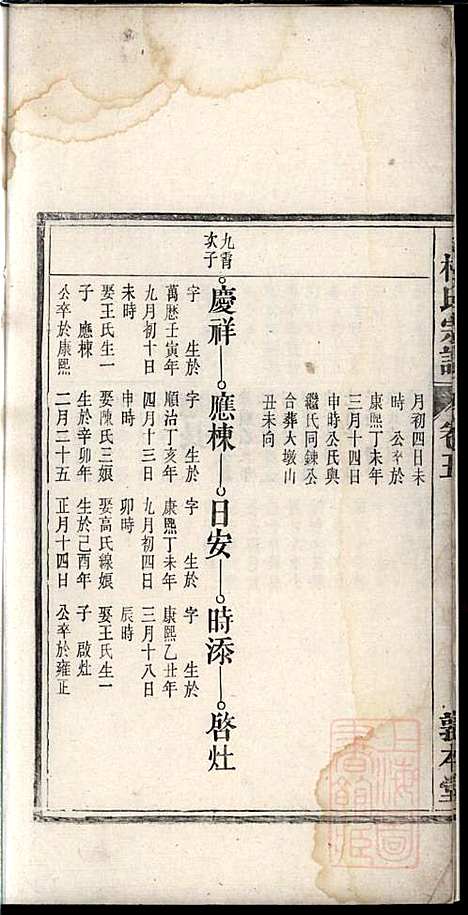 林氏宗譜
卷五
敦本堂
月初四日未
時 公卒於
康熙丁未年
三月十四日
申時公氏與
繼氏同鍊公
合葬大墩山
丑未向
九霄
次子
慶祥
應棟
日安
時添
啓灶
字 生於
萬曆壬寅年
九月初十日
未時
娶王氏生一
子 應棟
公卒於康熙
字 生於
順治丁亥年
四月十三日
申時
娶陳氏三娘
生於辛卯年
二月二十五
字 生於
康熙丁未年
九月初四日
卯時
娶高氏線娘
生於己酉年
正月十四日
字 生於
康熙乙丑年
三月十八日
辰時
娶王氏生一
子 啟灶
公卒於雍正
上海圖書館藏